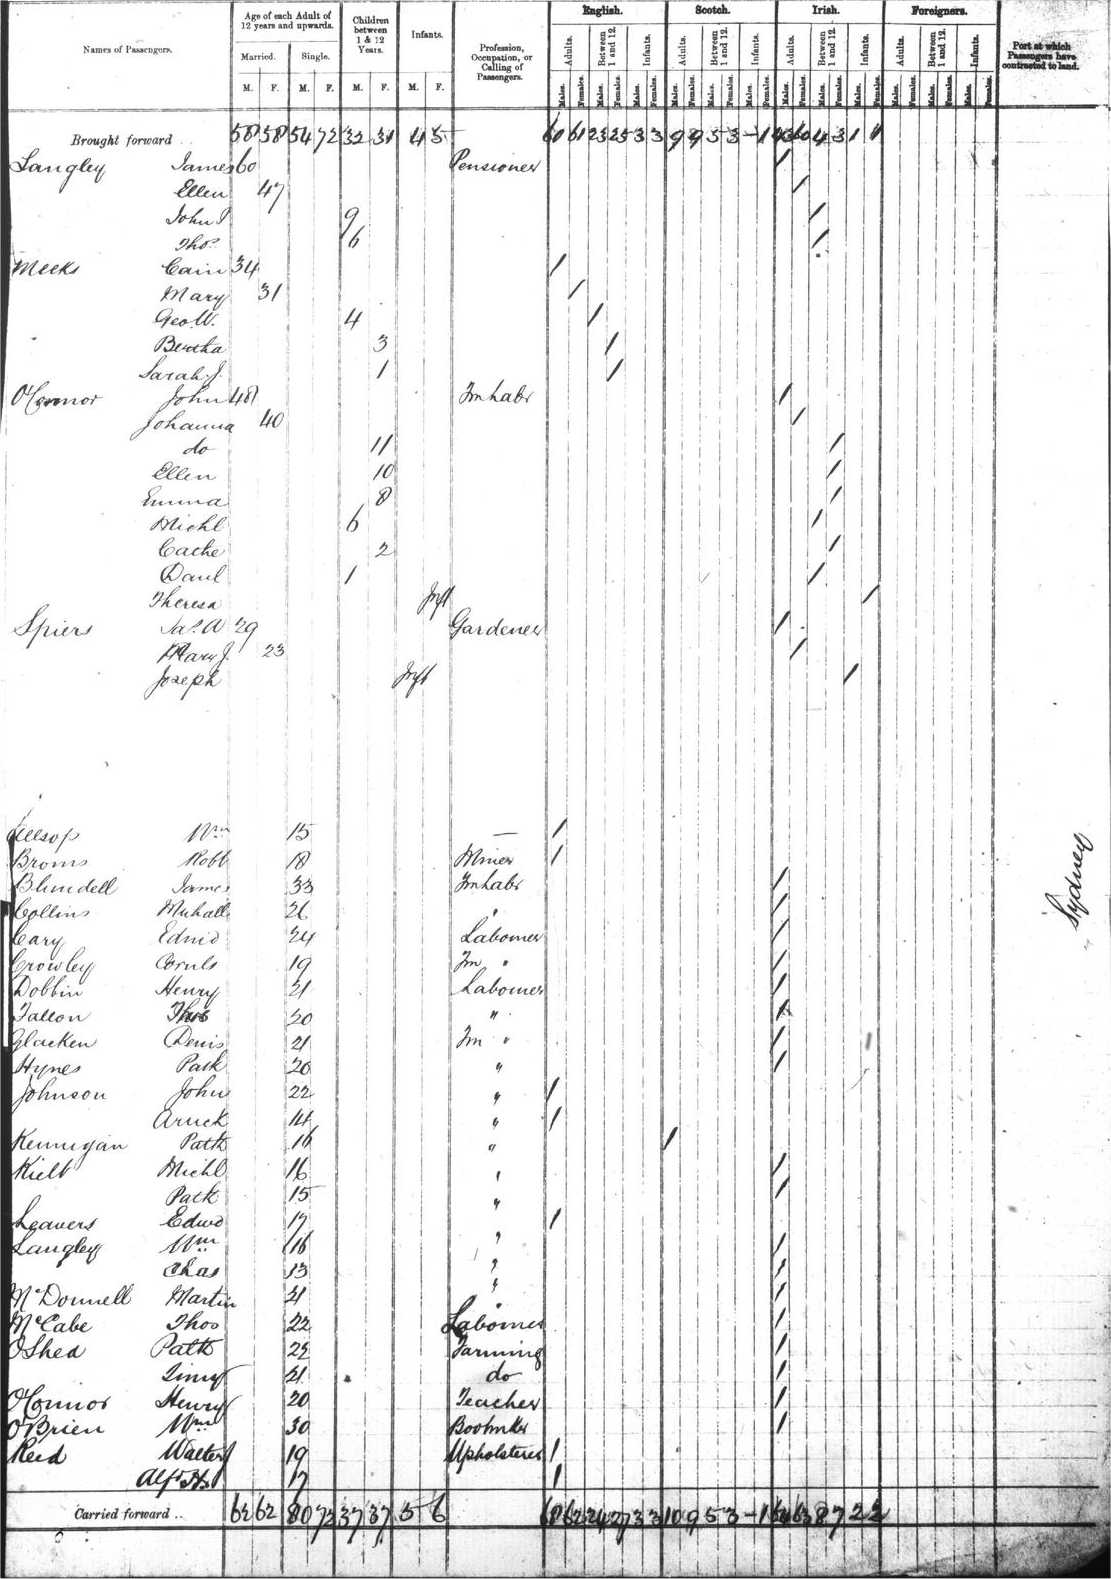 Names of Passengers.
Age of each Adult of 12 years and upwards.
Married. Single.
M. F. M. F.
Children between 1 & 12 Years.
M. F.
Infants.
M. F.
Profession, Occupation, or Calling of Passengers.
English. Scotch. Irish. Foreigners.
Adults. Between 1 and 12. Infants. Adults. Between 1 and 12. Infants. Adults. Between 1 and 12. Infants. Adults. Between 1 and 12. Infants.
Males. Females. Males. Females. Males. Females. Males. Females. Males. Females. Males. Females. Males. Females. Males. Females. Males. Females. Males. Females. Males. Females. Males. Females.
Port at which Passengers have contracted to land.
Brought forward .. 58 58 54 72 32 31 4 5 61 61 23 25 3 3 9 9 5 3 - 1 4 3 1 1
Langley James 60 Pensioner /
Ellen 47 /
John P 9 /
Thos. 6 /
Meeks Cain 34 /
Mary 31 /
Geo W. 4 /
Bertha 3 /
Sarah J. 1 /
O'Connor John 48 Fm labr /
Johanna 40 /
do 11 /
Ellen 10 /
Emma 8 /
Michl 6 /
Cache 2 /
Danl 1 /
Theresa Inft /
Spiers Jas. W 29 Gardener /
Mary J. 23 /
Joseph Inft /
Allsop Wm 15 — /
Broms Robt 18 Miner /
Blundell James 33 Fm labr /
Collins Michall 26 " /
Cary Edmd 24 Labourer /
Crowley Cornls 19 Fm " /
Dobbin Henry 21 Labourer /
Fallon Thos 20 " /
Glacken Denis 21 Fm " /
Hynes Patk 20 " /
Johnson John 22 " /
14 " /
Kennigan Patk 16 " /
Kielt Michl 16 " /
Patk 15 " /
Leavers Edwd 17 " /
Langley Wm 16 " /
Chas 13 " /
McDonnell Martin 21 " /
McCabe Thos 22 Labourer /
OShea Patk 25 Farming /
Timy 21 do /
O'Connor Henry 20 Teacher /
O'Brien Wm 30 Bootmkr /
Reid Walter J 19 Upholsterer /
Alfd H. 17 /
Sydney
Carried forward .. 62 62 80 72 37 37 5 6 68 62 24 27 3 3 10 9 5 3 - 1 64 63 8 7 2 2